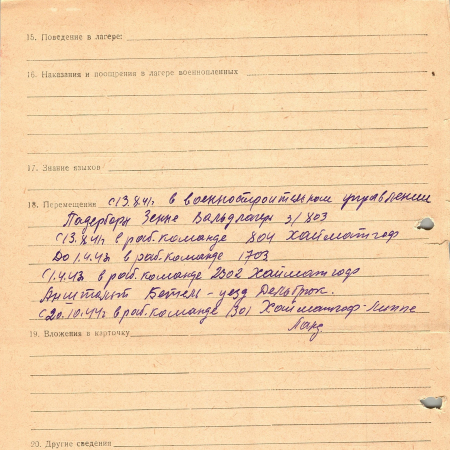 15. Поведение в лагере:
16. Наказания и поощрения в лагере военнопленных
17. Знание языков
18. Перемещения с 13.8.41г в военностроительном управлении
Падерборн Зенне Вальдлагерь э/803
с 13.8.41г в раб. команде 804 Хайматгоф
До 1.4.42 в раб. команде 1703
С 1.4.42 в раб. команде 2302 Хайматгоф
Анштальт Бетель - уезд Дельбрюк.
с 20.10.44г в раб. команде 1301 Хайматгоф-Липпе
Ланд
19. Вложения в карточку
20. Другие сведения